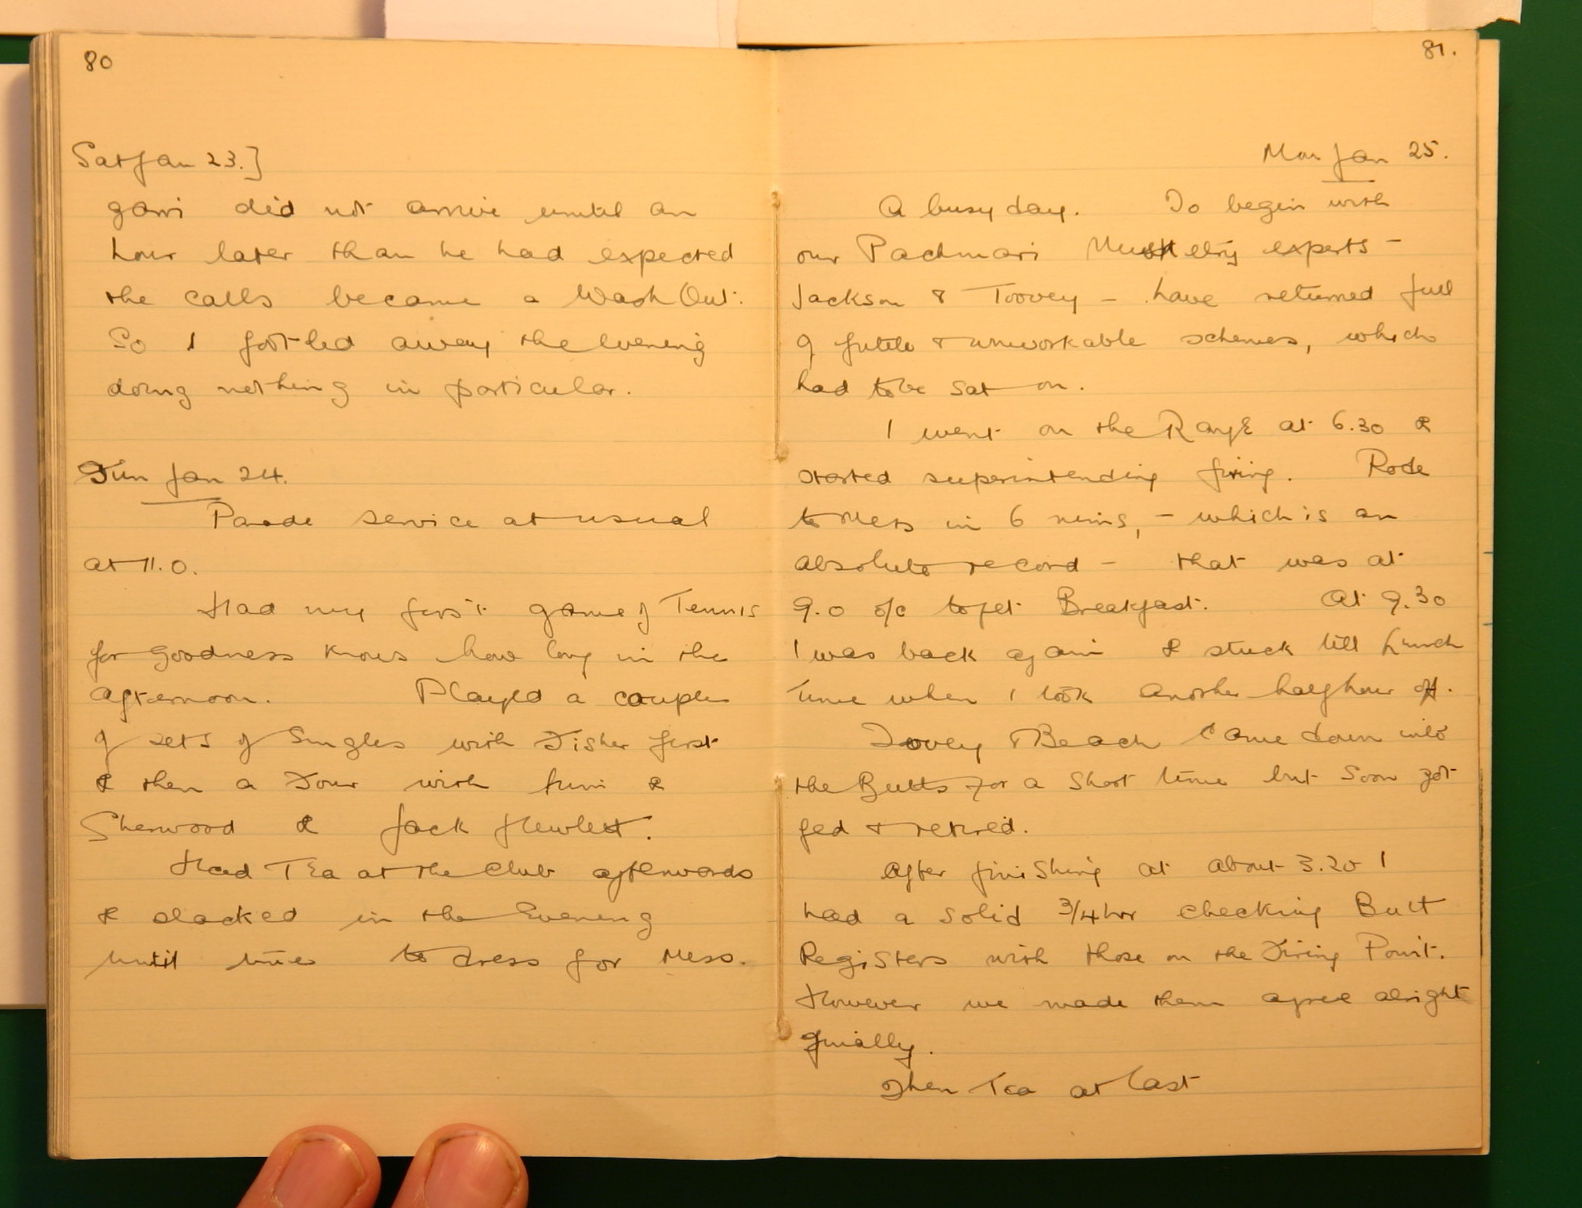 80
Sat Jan 23.]
garri did not arrive until an
hour later than he had expected
the calls became a Wash Out.
So I footled away the evening
doing nothing in particular.
Sun Jan 24.
Parade service at usual
at 11.0.
Had my first game of Tennis
for goodness knows how long in the
afternoon. Played a couple
of sets of Singles with Fisher first
& then a Four with him &
Sherwood & Jack Hewlett.
Had Tea at the Club afterwards
& slacked in the Evening
until time to dress for Mess.
81.
Mon Jan 25.
A busy day. To begin with
our Pachmari Musketry experts -
Jackson & Toovey - have returned full
of futile & unworkable schemes, which
had to be sat on.
I went on the Range at 6.30 &
started superintending firing. Rode
to Mess in 6 mins, - which is an
absolute record - that was at
9.0 o/c to get Breakfast. At 9.30
I was back again & stuck till Lunch
time when I took another half hour off.
Toovey & Beach came down into
the Butts for a short time but soon got
fed & retired.
After finishing at about 3.20 I
had a solid 3/4 hr checking Butt
Registers with those on the Firing Point.
However we made them agree alright
finally.
Then Tea at last